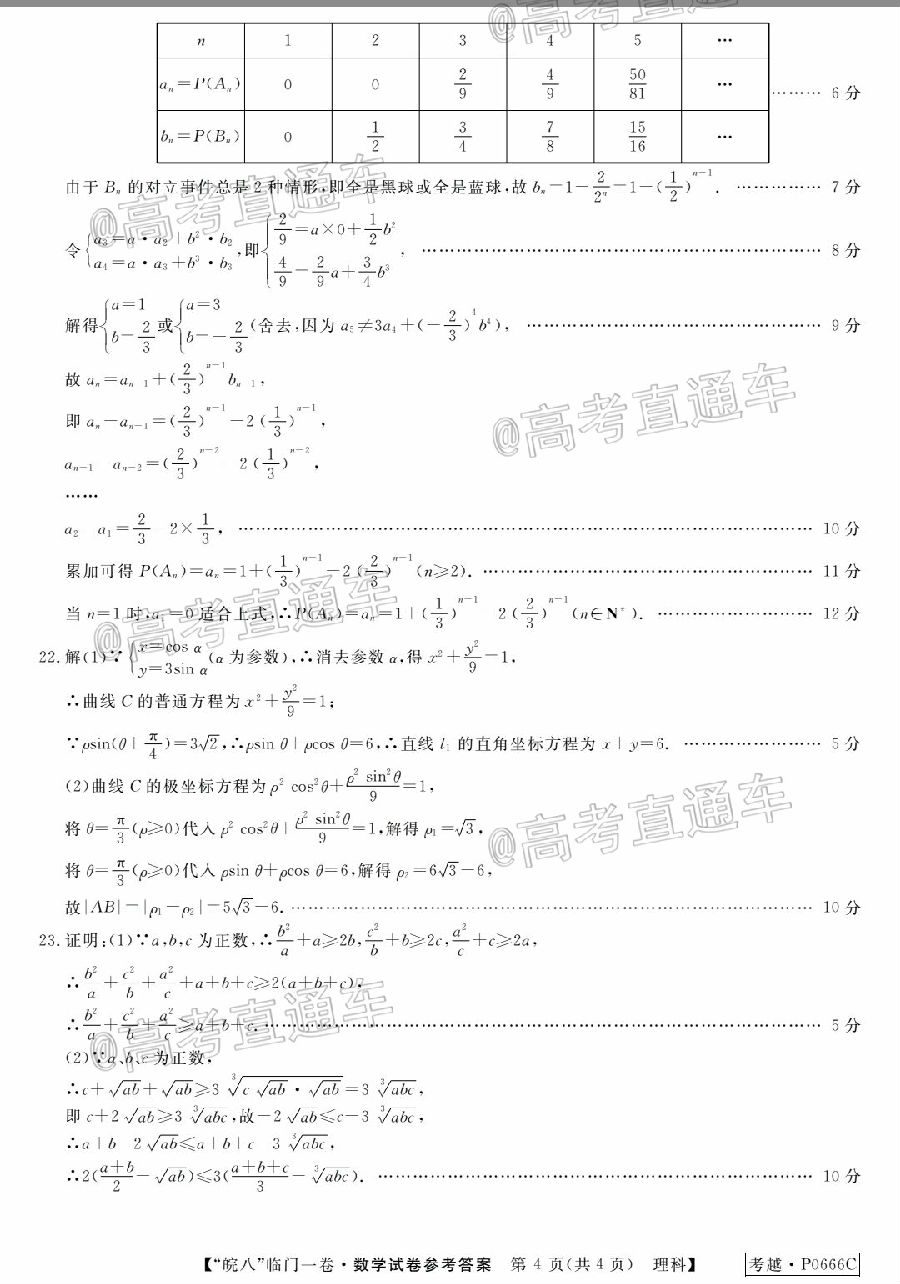 n 1 2 3 4 5 …
aₙ=P(Aₙ) 0 0 2/9 4/9 50/81 … ……… 6 分
bₙ=P(Bₙ) 0 1/2 3/4 7/8 15/16 …
由于 Bₙ 的对立事件总是 2 种情形,即全是黑球或全是蓝球,故 bₙ=1-2/2ⁿ=1-(1/2)ⁿ⁻¹. …………… 7 分
令{a₃=a·a₂+b²·b₂ a₄=a·a₃+b³·b₃,即{2/9=a×0+1/2b² 4/9=2/9a+3/4b³, …… 8 分
解得{a=1 b=2/3 或{a=3 b=-2/3 (舍去,因为 a₅≠3a₄+(-2/3)⁴b⁴), …… 9 分
故 aₙ=aₙ₋₁+(2/3)ⁿ⁻¹bₙ₋₁,
即 aₙ-aₙ₋₁=(2/3)ⁿ⁻¹-2(1/3)ⁿ⁻¹,
aₙ₋₁-aₙ₋₂=(2/3)ⁿ⁻²-2(1/3)ⁿ⁻²,
……
a₂-a₁=2/3-2×1/3. …… 10 分
累加可得 P(Aₙ)=aₙ=1+(1/3)ⁿ⁻¹-2(2/3)ⁿ⁻¹(n≥2). …… 11 分
当 n=1 时,a₁=0 适合上式,∴P(Aₙ)=aₙ=1+(1/3)ⁿ⁻¹-2(2/3)ⁿ⁻¹(n∈N⁺). …… 12 分
22.解(1)∵{x=cos α y=3sin α(α 为参数),∴消去参数 α,得 x²+y²/9=1,
∴曲线 C 的普通方程为 x²+y²/9=1;
∵ρsin(θ+π/4)=3√2,∴ρsin θ+ρcos θ=6,∴直线 l₁ 的直角坐标方程为 x+y=6. …… 5 分
(2)曲线 C 的极坐标方程为 ρ²cos²θ+ρ²sin²θ/9=1,
将 θ=π/3(ρ≥0)代入 ρ²cos²θ+ρ²sin²θ/9=1,解得 ρ₁=√3,
将 θ=π/3(ρ≥0)代入 ρsin θ+ρcos θ=6,解得 ρ₂=6√3-6,
故|AB|=|ρ₁-ρ₂|=5√3-6. …… 10 分
23.证明:(1)∵a,b,c 为正数,∴b²/a+a≥2b,c²/b+b≥2c,a²/c+c≥2a,
∴b²/a+c²/b+a²/c+a+b+c≥2(a+b+c),
∴b²/a+c²/b+a²/c≥a+b+c. …… 5 分
(2)∵a、b、c 为正数,
∴c+√ab+√ab≥3∛(c√ab·√ab)=3∛abc,
即 c+2√ab≥3∛abc,故-2√ab≤c-3∛abc,
∴a+b-2√ab≤a+b+c-3∛abc,
∴2(a+b/2-√ab)≤3(a+b+c/3-∛abc). …… 10 分
【“皖八”临门一卷·数学试卷参考答案 第 4 页(共 4 页) 理科】 考越·P0666C
@高考直通车
@高考直通车
@高考直通车
@高考直通车
@高考直通车
@高考直通车